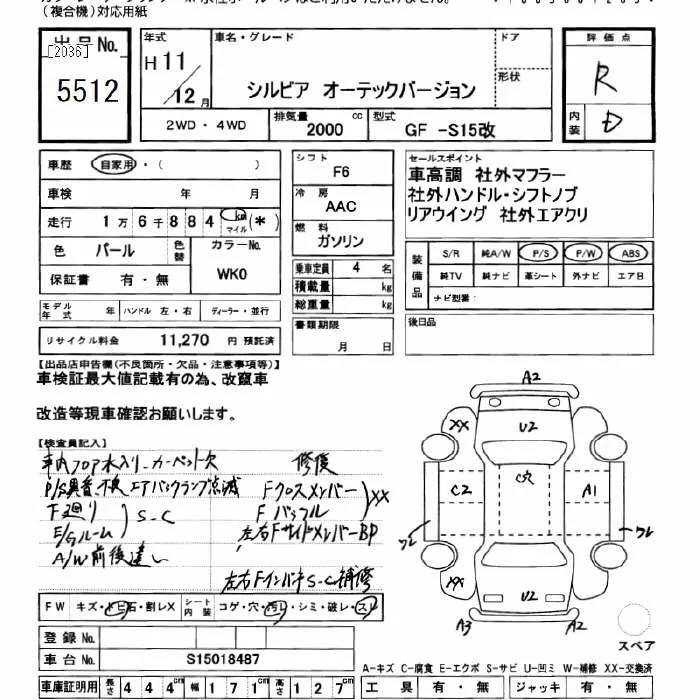 (複合機)対応用紙
出品No.
[2036]
5512
年式
H11/12月
車名・グレード
シルビア オーテックバージョン
ドア
形状
評価点
R
内装
D
2WD・4WD
排気量
2000 cc
型式
GF -S15改
車歴 自家用・( )
車検 年 月
走行 1万6千884 km マイル (*)
色 パール 色替 カラーNo. WK0
保証書 有・無
シフト F6
冷房 AAC
燃料 ガソリン
乗車定員 4 名
積載量 kg
総重量 kg
書類期限
月 日
セールスポイント
車高調 社外マフラー
社外ハンドル・シフトノブ
リアウイング 社外エアクリ
装備品
S/R 純A/W P/S P/W ABS
純TV 純ナビ 革シート 外ナビ エアB
ナビ型番:
後日品
モデル年式 年 ハンドル 左・右 ディーラー・並行
リサイクル料金 11,270 円 預託済
【出品店申告欄(不良箇所・欠品・注意事項等)】
車検証最大値記載有の為、改竄車
改造等現車確認お願いします。
【検査員記入】
車内フロア水入り カーペット欠
P/S異音、不良 エアバックランプ点滅
下廻り
E/gルーム
S・C
A/W前後違い
修復
Fクロスメンバー
Fバッフル
XX
左右FサイドメンバーBP
左右Fインパネ S-C 補修
A2
XX
U2
C穴
C2
A1
ワレ
ワレ
XX
U2
A3
A2
スペア
FW キズ・トビ石・割レX シート内装 コゲ・穴・汚レ・シミ・破レ・スレ
登録No.
車台No. S15018487
A-キズ C-腐食 E-エクボ S-サビ U-凹ミ W-補修 XX-交換済
車庫証明用 長さ 444cm 幅 171cm 高さ 127cm
工具 有・無 ジャッキ 有・無